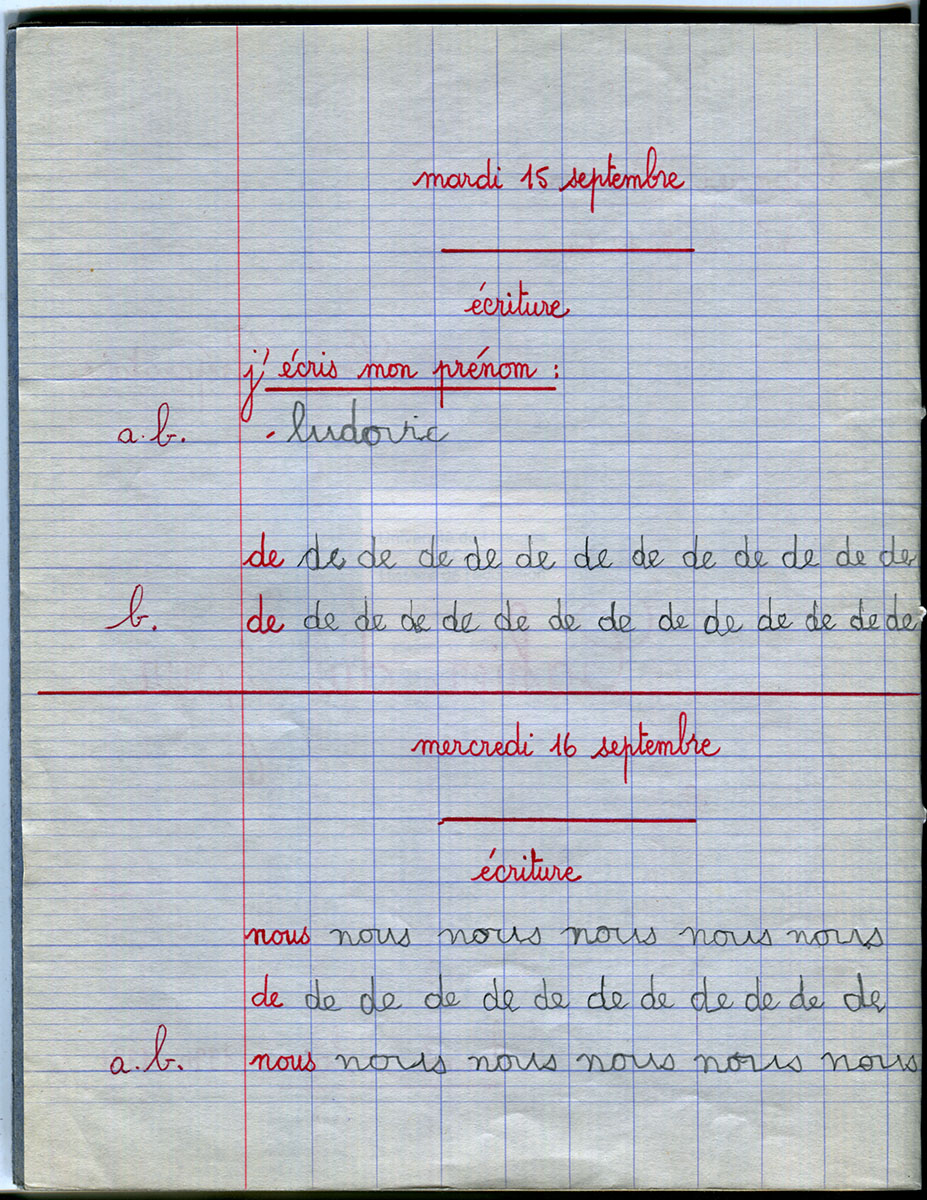 mardi 15 septembre
écriture
j'écris mon prénom :
a.b. - ludovic
de de de de de de de de de de de de de
b. de de de de de de de de de de de de de de
mercredi 16 septembre
écriture
nous nous nous nous nous nous
de de de de de de de de de de de de
a.b. nous nous nous nous nous nous